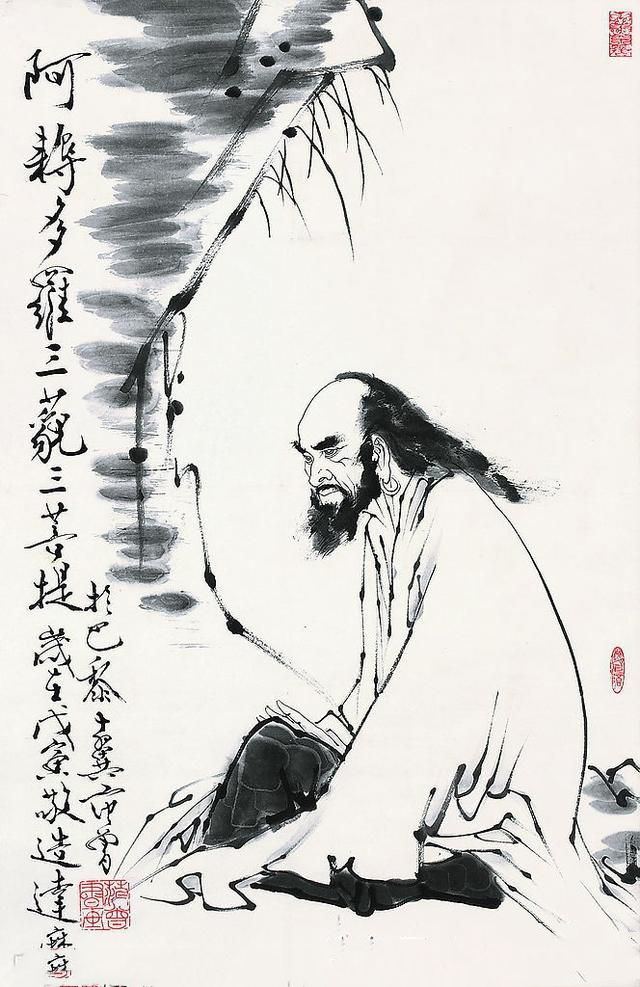 阿耨多羅三藐三菩提歲在戊寅敬造達麻
於巴黎十翼范曾